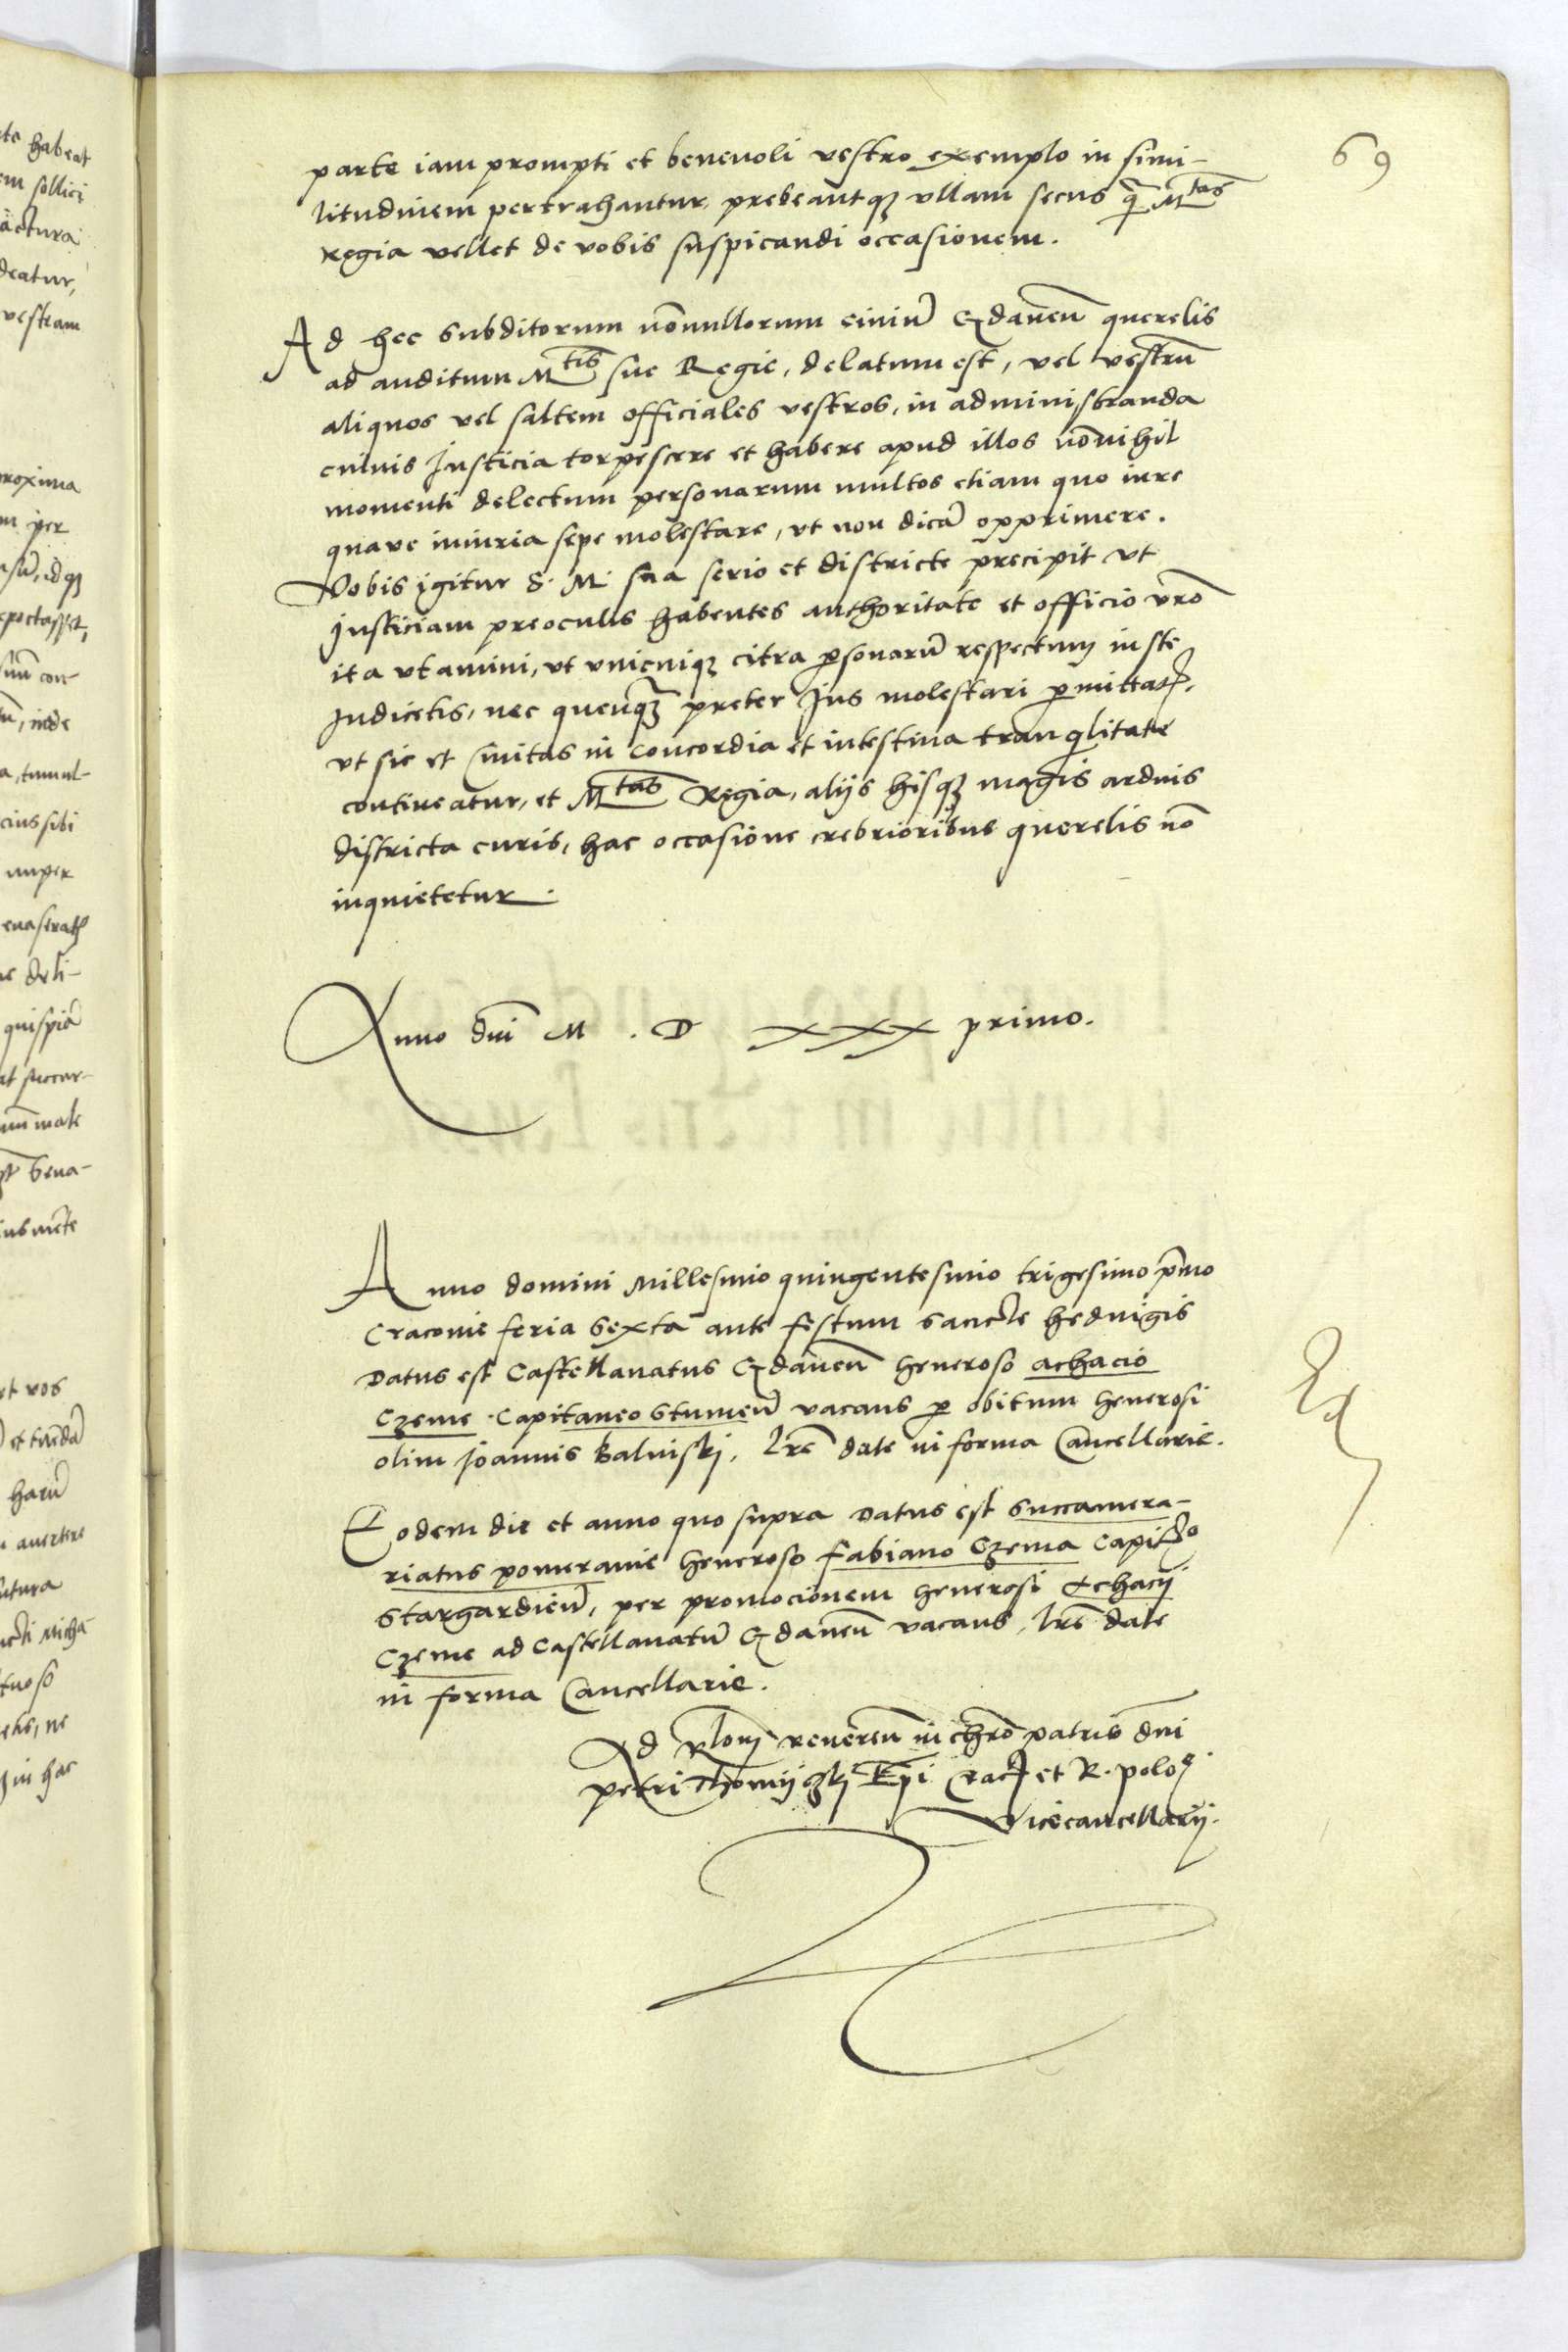 69
parte iam prompti et beneuoli vestro exemplo in simi-
litudinem pertrahantur, prebeantqȝ vllam secus q̃ Mtas
regia vellet de vobis suspicandi occasionem.
Ad hec subditorum nõnullorum ciuiũ Gdaneñ querelis
ad auditum Mtis sue Regie, delatum est, vel vestrũ
aliquos vel saltem officiales vestros, in administranda
cuiuis Justicia torpescere et habere apud illos nõnihil
momenti delectum personarum multos etiam quo iure
quaue iniuria sepe molestare, vt non dicã opprimere.
Vobis igitur S. M. sua serio et districte precipit vt
Justiciam preoculis habentes authoritate et officio vrõ
ita vtamini, vt vnicuiqȝ citra psonarũ respectum iuste
Judicetis, nec quenqȝ preter Jus molestari pmittatis,
vt sic et Ciuitas in concordia et intestina tranqlitate
contineatur, et Mtas Regia, alijs hisqȝ magis arduis
districta curis, hac occasione crebrioribus querelis nõ
inquietetur.
Anno dñi M . D xxx primo.
Anno domini Millesimo quingentesimo trigesimo pmo
Cracouie feria sexta ante festum sancte hedwigis
Datus est Castellanatus Gdaneñ Generoso achacio
Czeme Capitaneo Stumeñ vacans p obitum Generosi
olim Joannis Balinskj. Lrẽ date in forma Cancellarie.
Eodem die et anno quo supra Datus est succamera-
riatus pomeranie Generoso fabiano Czema Capit̃o
Stargardieñ, per promocionem Generosi Achacij
Czeme ad Castellanatũ Gdaneñ vacans, lrẽ date
in forma Cancellarie.
Ad rlonẽ reuereñ in chro patris dñi
petri Thomijczkj Epi Crac et R. polo
Vicecancellarij.